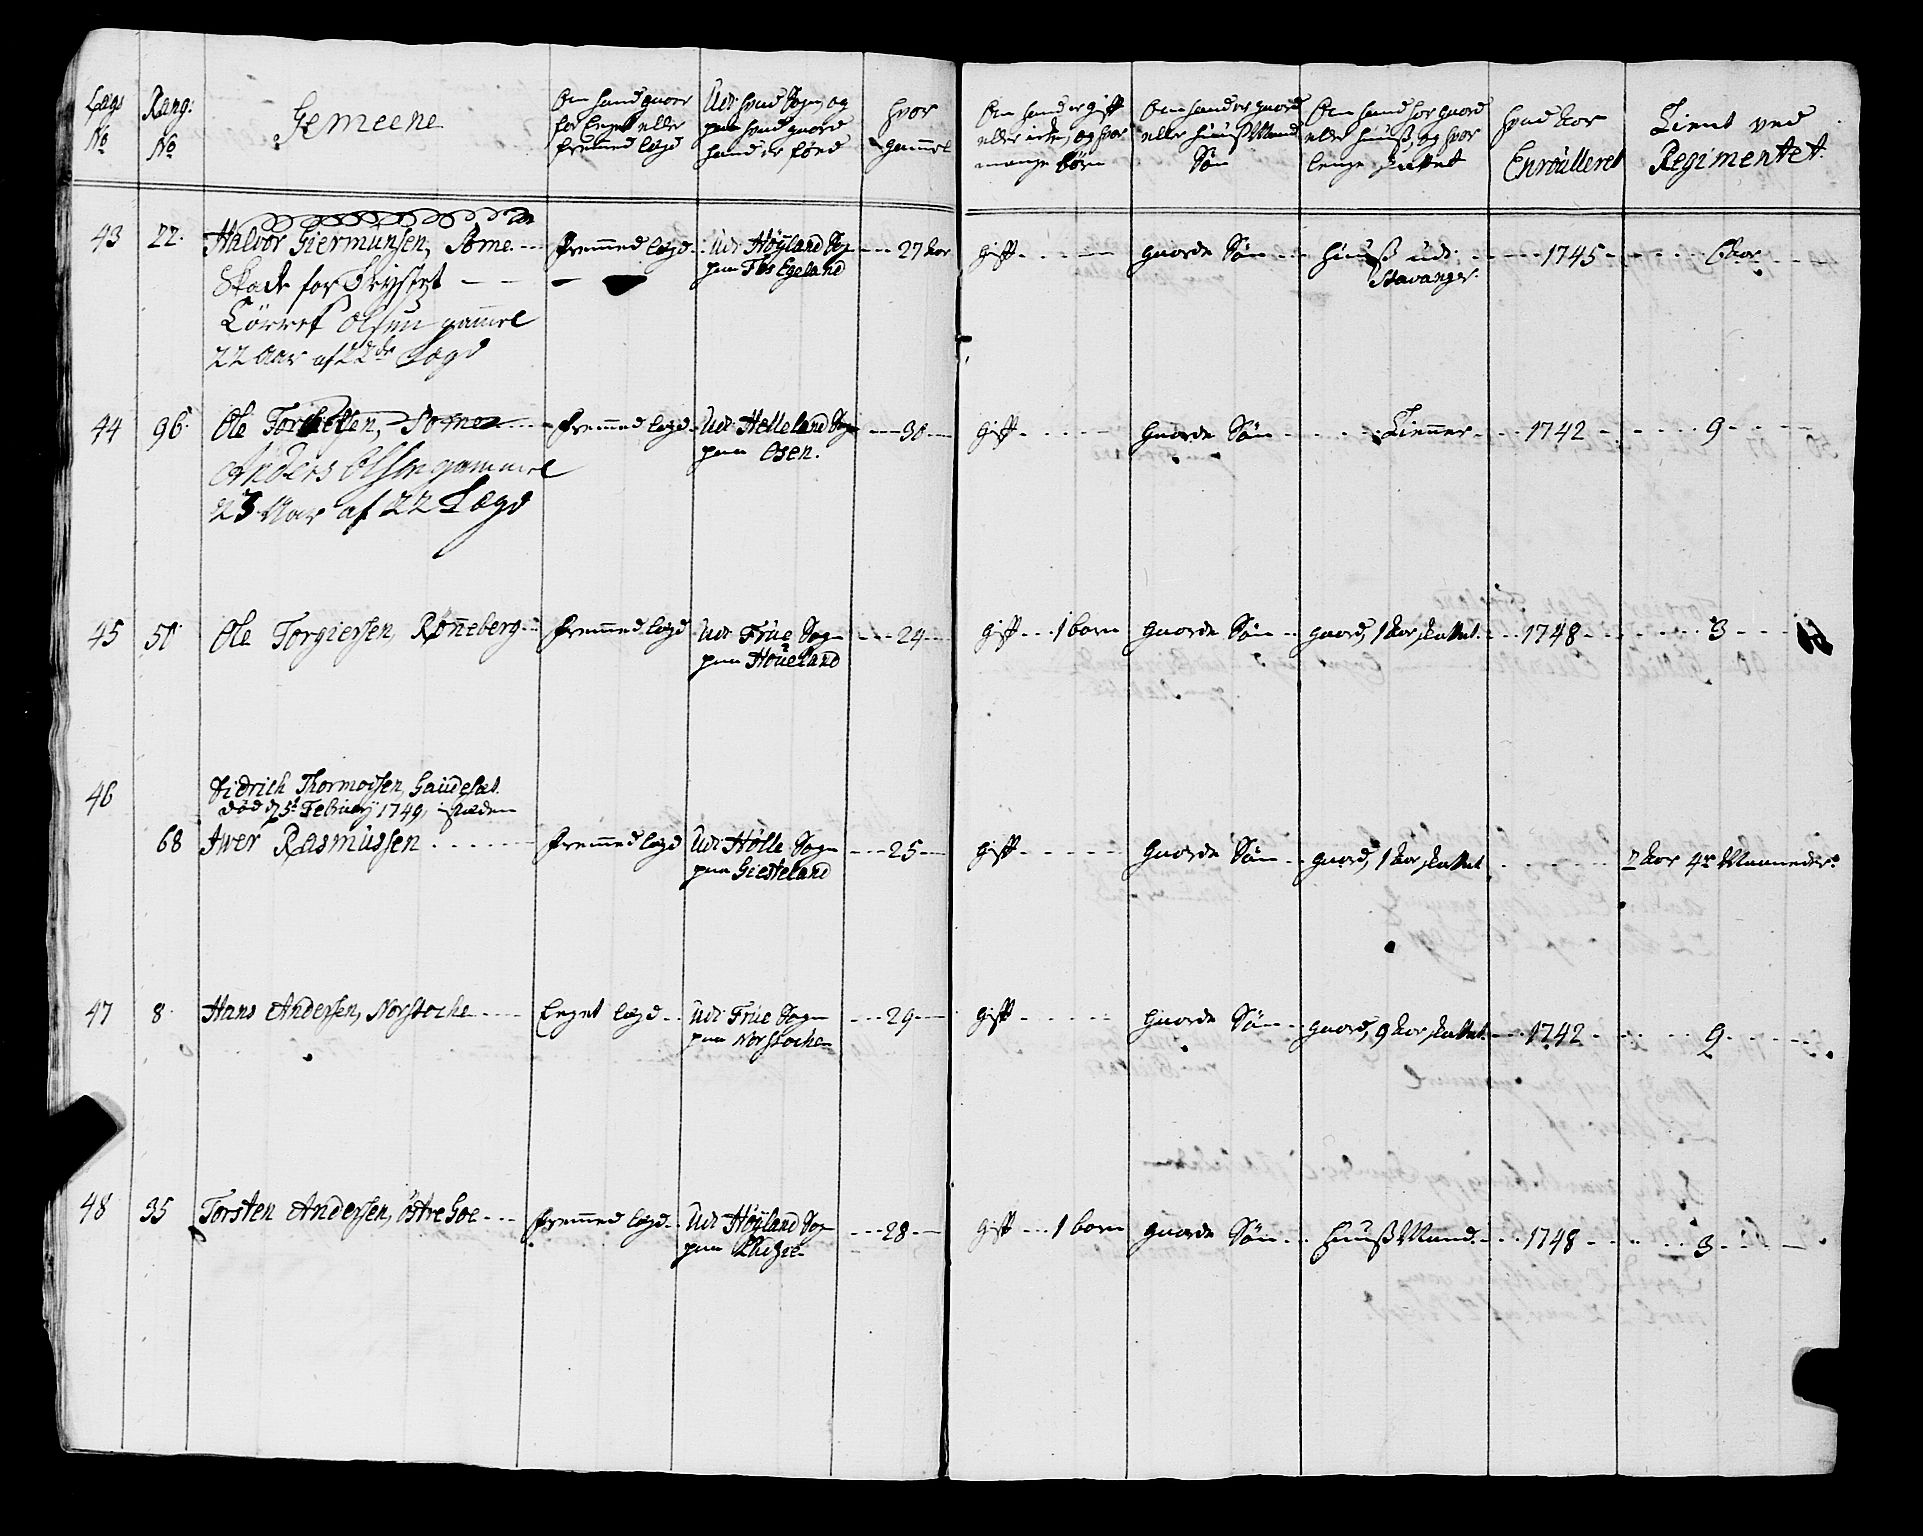 Lægs No
Rang: No
Gemeene
Om hand gaaer for Eeget eller fremmed lægd
Udi hvad Sogn og paa hvad gaard hand er föed
Hvor gammel
Om hand er gift eller icke, og hvor mange börn
Om hand er gaard eller Huuß Mands Sön
Om hand har gaard eller huuß, og hvor lenge skattet
Hvad Aar Enroulleret
Tient ved Regimentet.
43 22. Halvor Giermunsen, Some. --- fremmed lægd. Udi Höyland Sogn --- 27 Aar gift. gaards Sön huuß udi --- 1745 6 Aar
Skade for Brÿstet paa Fos Egeland Stavanger.
Olsen gammel
22 Aar af 22de Lægd
44 96. Ole Torkelsen, Some fremmed lægd. Udi Helleland Sogn --- 30 gift gaards Sön Tienner 1742 9
Anders Olsen gammel paa Osen.
23 Aar af 22 Lægd
45 51 Ole Torgiersen, Rönneberg fremmed lægd Udi Frue Sogn --- 24 gift 1 barn gaards Sön gaard, 1 Aar skattet 1748 3
paa Höüeland
46 Didrich Thormodsen, Gaudeland
död d 5t Februarÿ 1749, i stæden
68 Iver Rasmussen fremmed lægd Udi Hölle Sogn --- 25 gift gaards Sön gaard, 1 Aar skattet 2 Aar 4r Maaneder.
paa Giesteland
47 8. Hans Andersen, Norstocke Eeget lægd Udi Frue Sogn --- 29 gift gaards Sön gaard, 9 Aar skattet 1742 9
paa Norstocke
48 35 Torsten Andersen, östre Goe fremmed lægd Udi Höyland Sogn --- 28 gift 1 barn gaards Sön huuß Mand 1748 3
paa